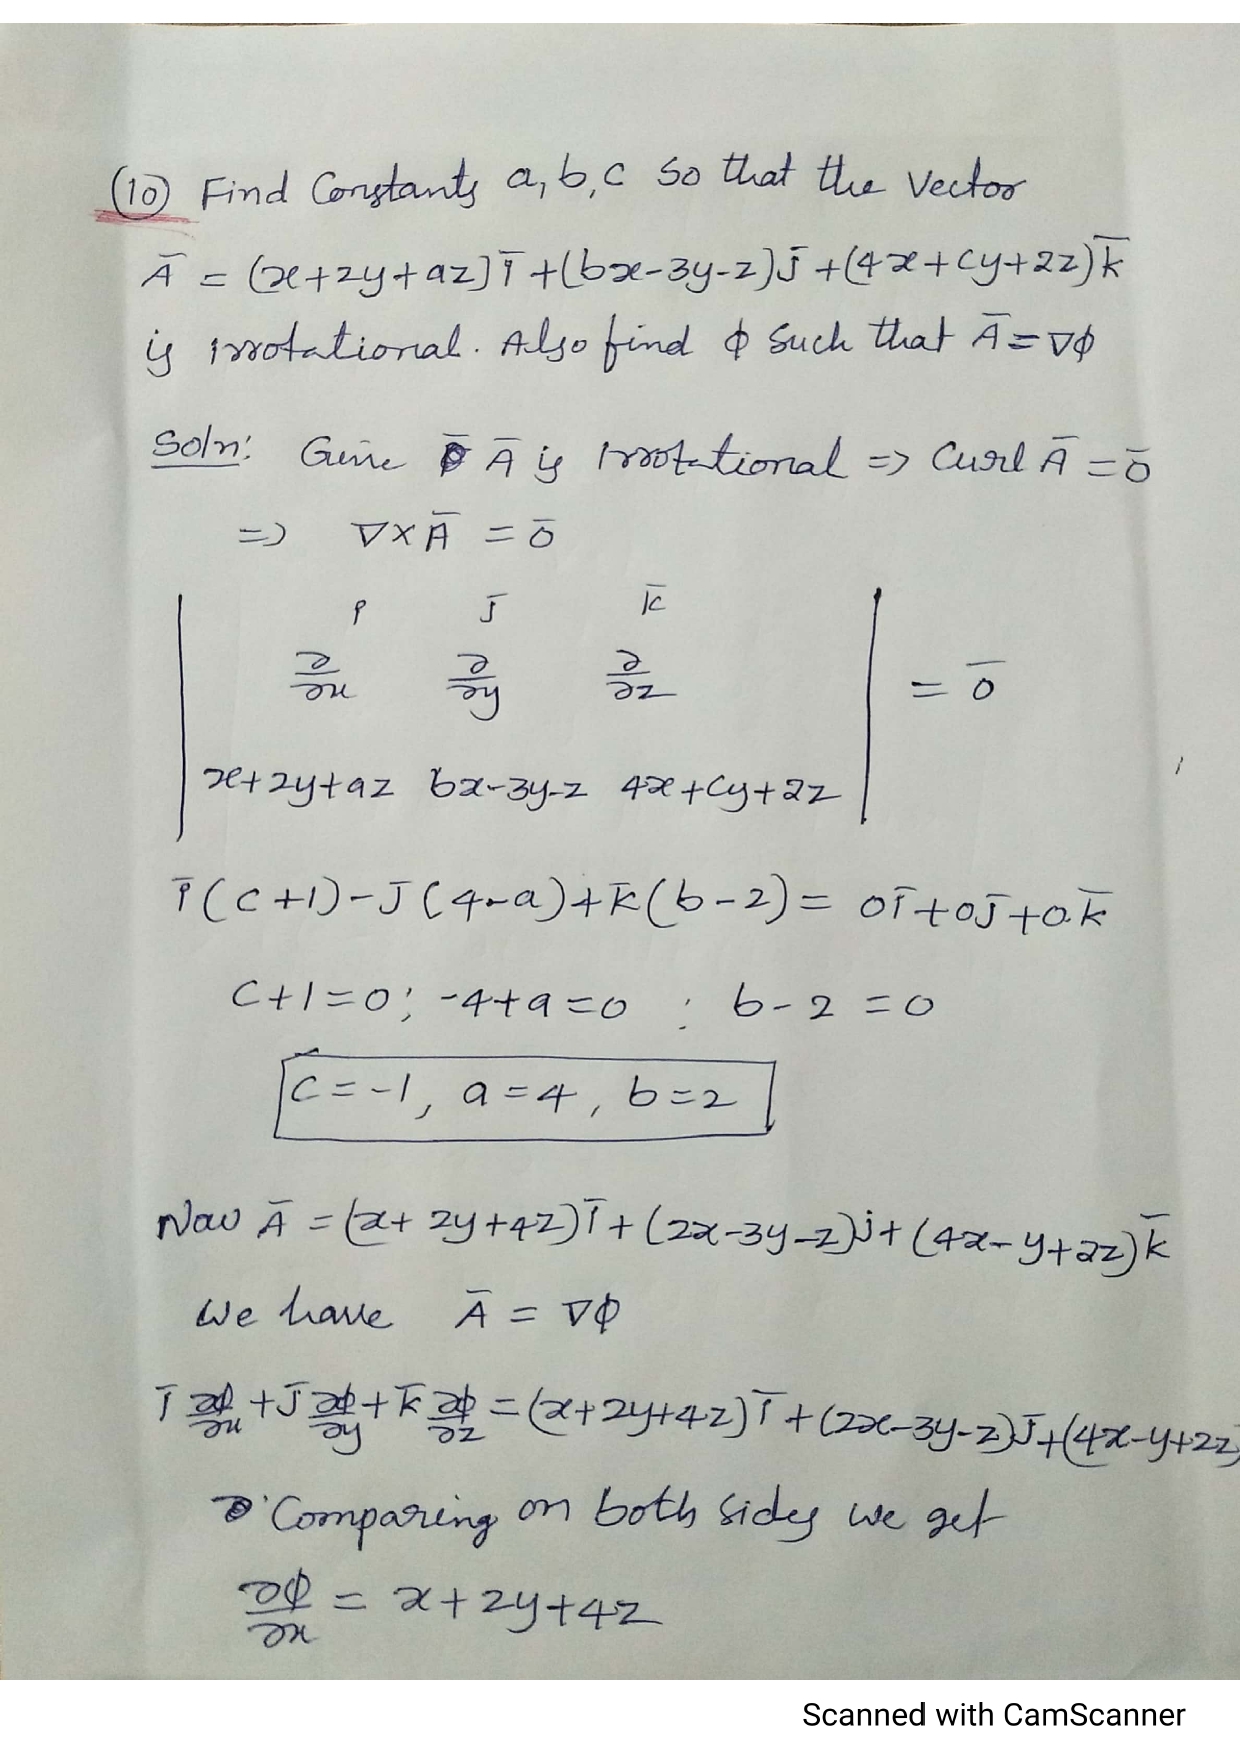 (10) Find Constants a, b, c so that the Vector
Ā = (x+2y+az)ī+(bx-3y-z)j̄+(4x+cy+2z)k̄
is irrotational. Also find φ Such that Ā=∇φ
Soln: Give Ā is Irrotational => Curl Ā = ō
=> ∇×Ā = ō
i j̄ k̄
∂/∂x ∂/∂y ∂/∂z = ō
x+2y+az bx-3y-z 4x+cy+2z
ī(c+1)-j̄(4-a)+k̄(b-2)= 0ī+0j̄+0.k̄
c+1=0; -4+a=0 : b-2=0
c=-1, a=4, b=2
Now Ā = (x+2y+4z)ī+(2x-3y-z)j+(4x-y+2z)k̄
We have Ā = ∇φ
ī ∂φ/∂x +j̄ ∂φ/∂y + k̄ ∂φ/∂z = (x+2y+4z)ī+(2x-3y-z)j̄+(4x-y+2z)
Comparing on both sides we get
∂φ/∂x = x+2y+4z
Scanned with CamScanner